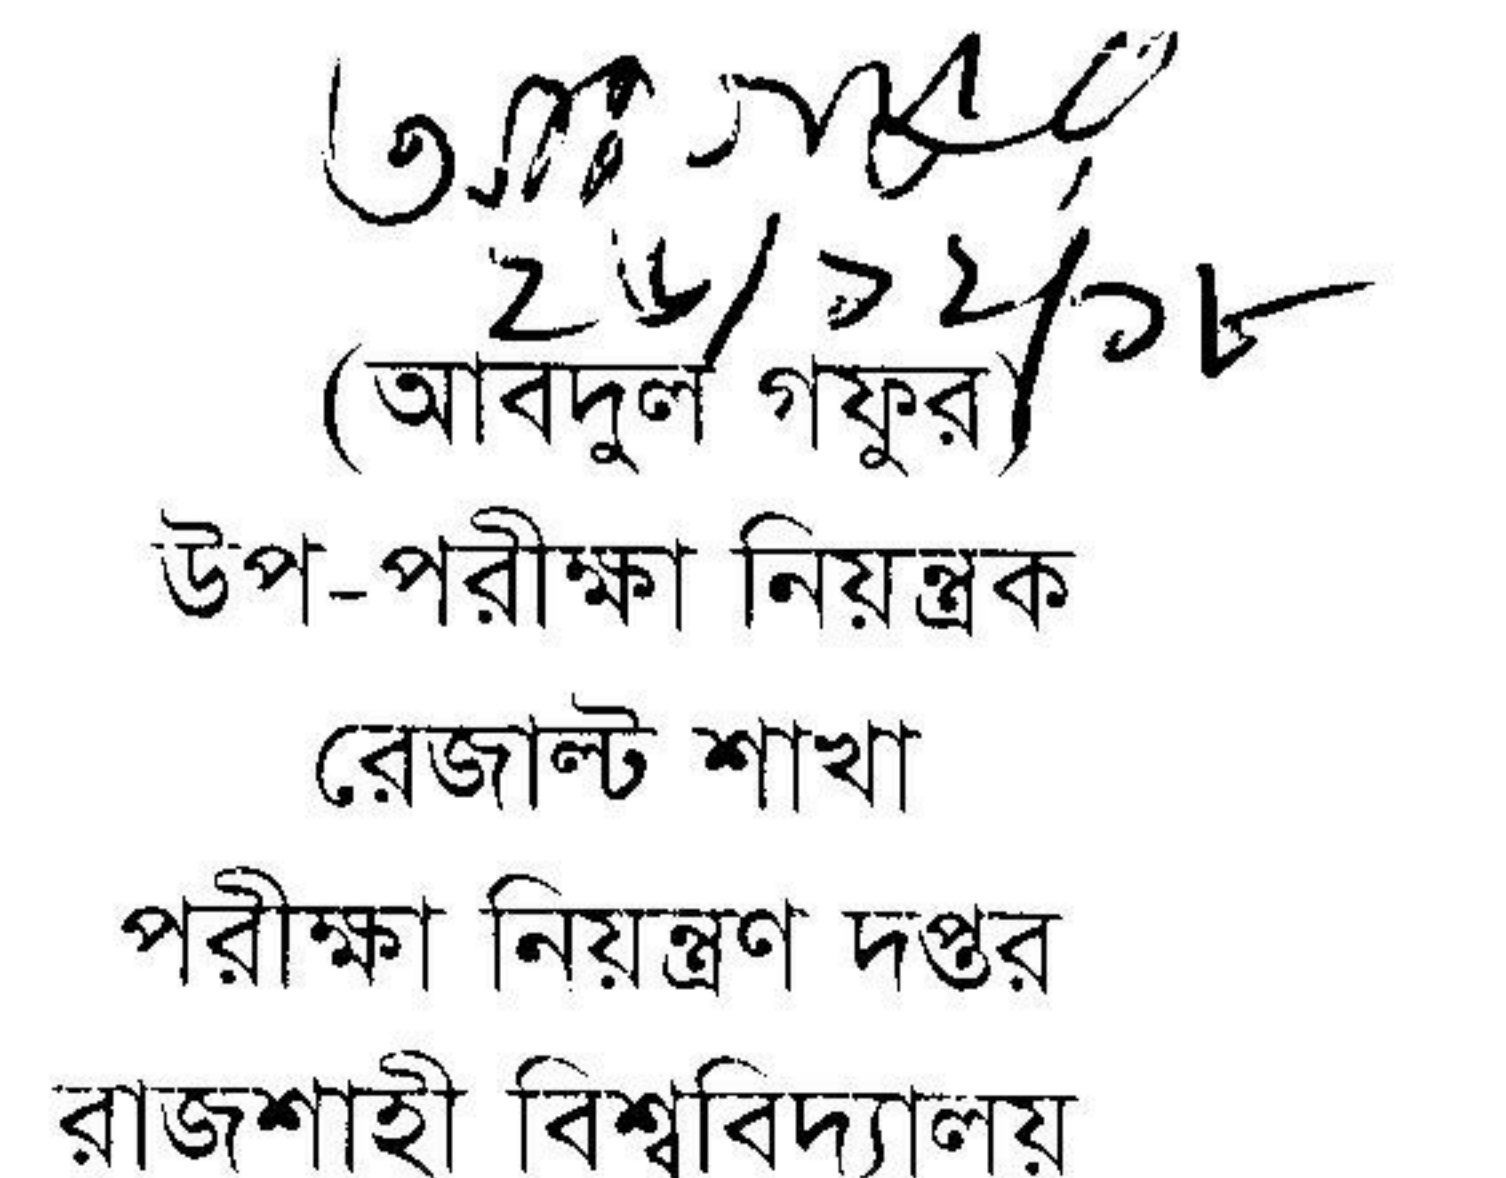 ২৬/১২/১৮
(আবদুল গফুর)
উপ-পরীক্ষা নিয়ন্ত্রক
রেজাল্ট শাখা
পরীক্ষা নিয়ন্ত্রণ দপ্তর
রাজশাহী বিশ্ববিদ্যালয়